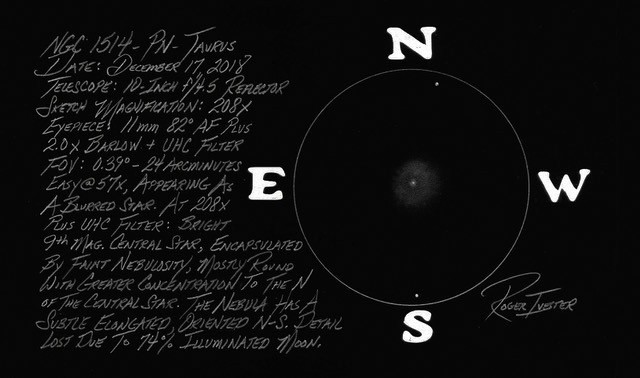 NGC 1514 - PN - Taurus
Date: December 17, 2018
Telescope: 10-Inch f/4.5 Reflector
Sketch Magnification: 208x
Eyepiece: 11mm 82° AF Plus
2.0x Barlow + UHC Filter
FOV: 0.39° - 24 Arcminutes
Easy @ 57x, Appearing As
A Blurred Star. At 208x
Plus UHC Filter: Bright
9th Mag. Central Star, Encapsulated
By Faint Nebulosity, Mostly Round
With Greater Concentration To The N
of The Central Star. The Nebula Has A
Subtle Elongated, Oriented N-S. Detail
Lost Due To 74% Illuminated Moon.
N
E
W
S
Roger Ivester